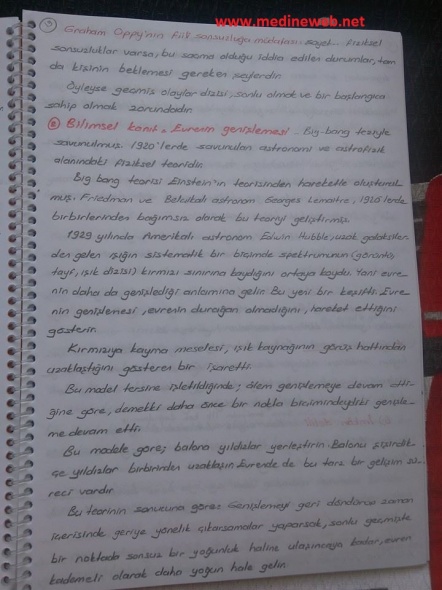 www.medineweb.net
13
Graham Oppy'nin fiili sonsuzluğa müdafası: şayet fiziksel
sonsuzluklar varsa, bu saçma olduğu iddia edilen durumlar, tam
da kişinin beklemesi gereken şeylerdir.
Öyleyse geçmiş olaylar dizisi, sonlu olmak ve bir başlangıca
sahip olmak zorundadır.
Bilimsel kanıt. Evrenin genişlemesi. Big-bang teziyle
savunulmuş. 1920'lerde savunulan astronomi ve astrofizik
alanındaki fiziksel teoridir.
Big bang teorisi Einstein'in teorisinden hareketle oluşturul-
muş. Friedman ve Belçikalı astronom Georges Lemaitre, 1920'lerde
birbirlerinden bağımsız olarak bu teoriyi geliştirmiş.
1929 yılında Amerikalı astronom Edwin Hubble, uzak galaksiler-
den gelen ışığın sistematik bir biçimde spektrumunun (görüntü,
tayf, ışık dizisi) kırmızı sınırına kaydığını ortaya koydu. Yani evre-
nin daha da genişlediği anlamına gelir. Bu yeni bir keşifti. Evre-
nin genişlemesi, evrenin durağan olmadığını, hareket ettiğini
gösterir.
Kırmızıya kayma meselesi, ışık kaynağının görüş hattından
uzaklaştığını gösteren bir işaretti.
Bu model tersine işletildiğinde; âlem genişlemeye devam etti-
ğine göre, demekki daha önce bir nokta biçimindeydi genişle-
me devam etti.
Bu modele göre; balona yıldızlar yerleştirin. Balonu şişirdik-
çe yıldızlar birbirinden uzaklaşır. Evrende de bu tarz bir gelişim sü-
reci vardır.
Bu teorinin sonucuna göre: Genişlemeyi geri döndürür zaman
içerisinde geriye yönelik çıkarsamalar yaparsak, sonlu geçmişte
bir noktada sonsuz bir yoğunluk haline ulaşıncaya kadar, evren
kademeli olarak daha yoğun hale gelir.